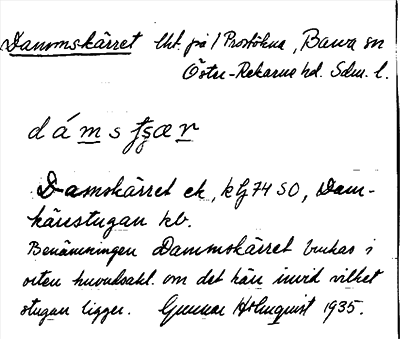 Dammskärret lht. på 1 Prostökna, Barva sn
Öster-Rekarne hd. Sdm. l.
dámsʃʂær
Damskärret ek, kbg 74 SO, Dam-
kärrstugan kb.
Benämningen Dammskärret brukas i
orten huvudsakl. om det kärr invid vilket
stugan ligger. Gunnar Holmquist 1935.